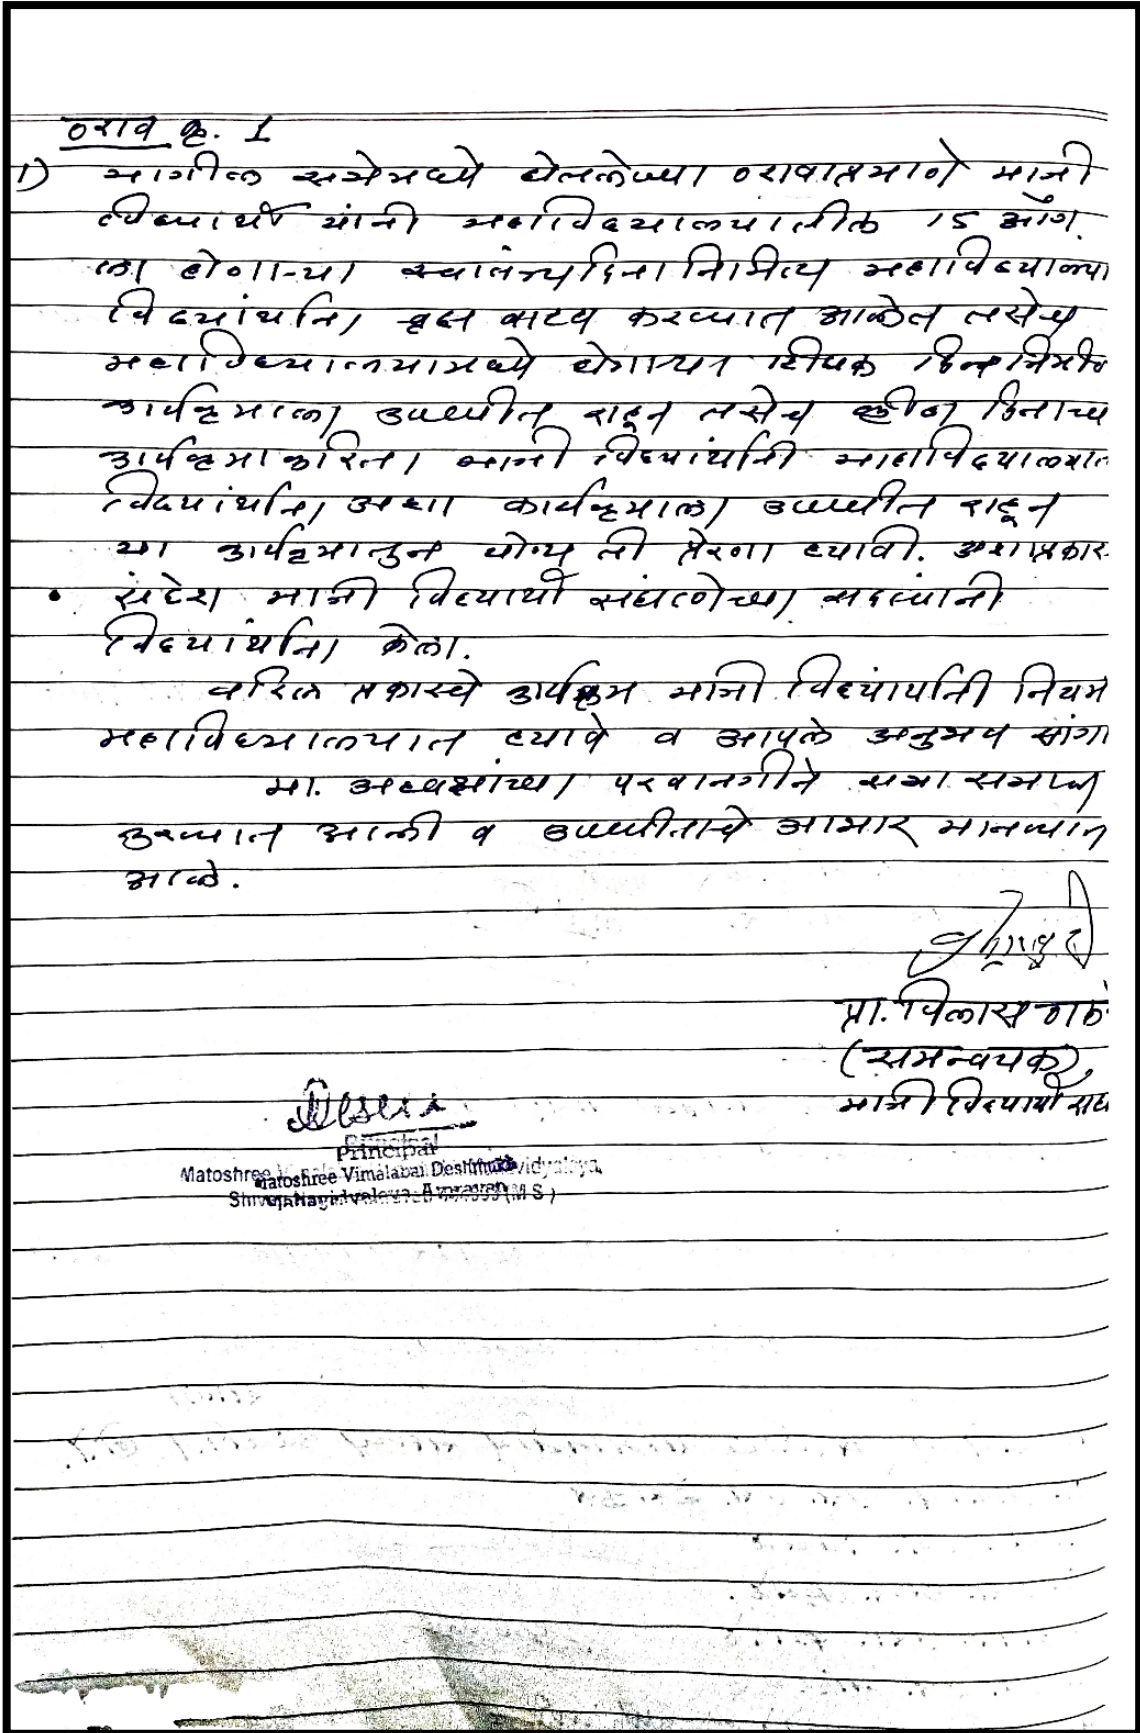 ठराव क्र. 1
1) मागील सभेमध्ये घेतलेल्या ठरावाप्रमाणे माजी
विद्यार्थी यांनी महाविद्यालयातील 15 ऑग.
ला होणाऱ्या स्वातंत्र्यदिना निमित्य महाविद्याल्या
विद्यार्थांना वृक्ष वाटप करण्यात आलेत तसेच
महाविद्यालयामध्ये होणाऱ्या शिक्षक दिना निमीत्य
कार्यक्रमाला उपस्थीत राहून तसेच क्रीडा दिनाच्य
कार्यक्रमाकरिता माजी विद्यार्थांनी माहाविद्यालयात
विद्यार्थांना अशा कार्यक्रमाला उपस्थीत राहून
या कार्यक्रमातुन योग्य ती प्रेरणा घ्यावी. अशाप्रकार
संदेश माजी विद्यार्थी संघटनेच्या सदस्यांनी
विद्यार्थांना केला.
वरिल प्रकारचे कार्यक्रम माजी विद्यार्थांनी नियम
महाविद्यालयात घ्यावे व आपले अनुभव सांगा
मा. अध्यक्षांच्या परवानगीने सभा समाप्त
करण्यात आली व उपस्थीतांचे आभार मानण्यात
आले.
प्रा. विलास ठाक
(समन्वयक)
माजी विद्यार्थी संघ
Principal
Matoshree Vimalabai Deshmukh
Mahavidyalaya, Amravati (M S)